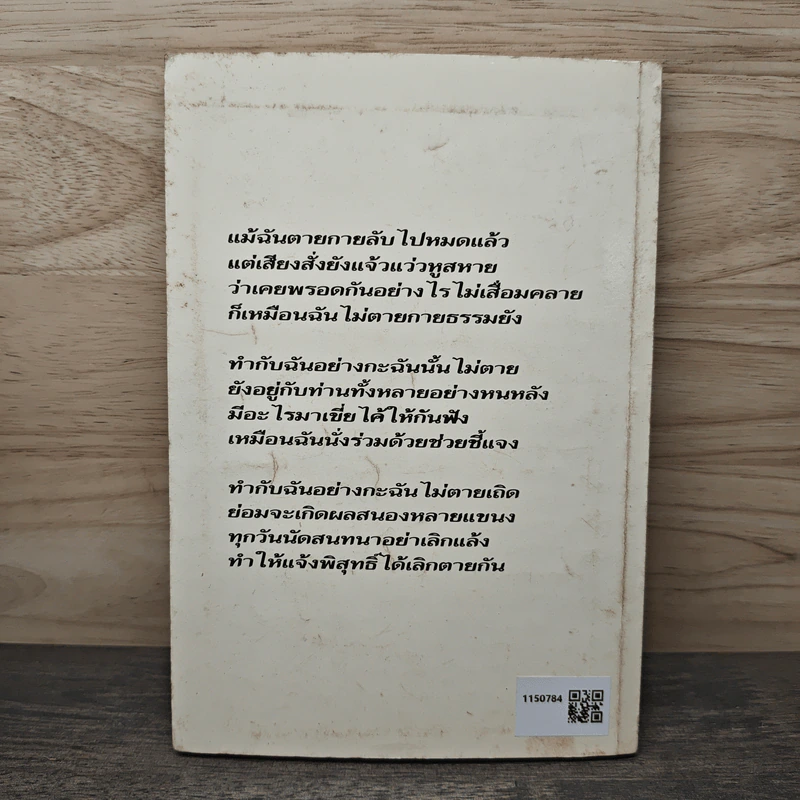 แม้ฉันตายกายลับไปหมดแล้ว
แต่เสียงสั่งยังแจ้วแว่วหูสหาย
ว่าเคยพรอดกันอย่างไรไม่เสื่อมคลาย
ก็เหมือนฉันไม่ตายกายธรรมยัง
ทำกับฉันอย่างกะฉันนั้นไม่ตาย
ยังอยู่กับท่านทั้งหลายอย่างหนหลัง
มีอะไรมาเขี่ยไค้ให้กันฟัง
เหมือนฉันนั่งร่วมด้วยช่วยชี้แจง
ทำกับฉันอย่างกะฉันไม่ตายเถิด
ย่อมจะเกิดผลสนองหลายแขนง
ทุกวันนัดสนทนาอย่าเลิกแล้ง
ทำให้แจ้งพิสุทธิ์ได้เลิกตายกัน
1150784